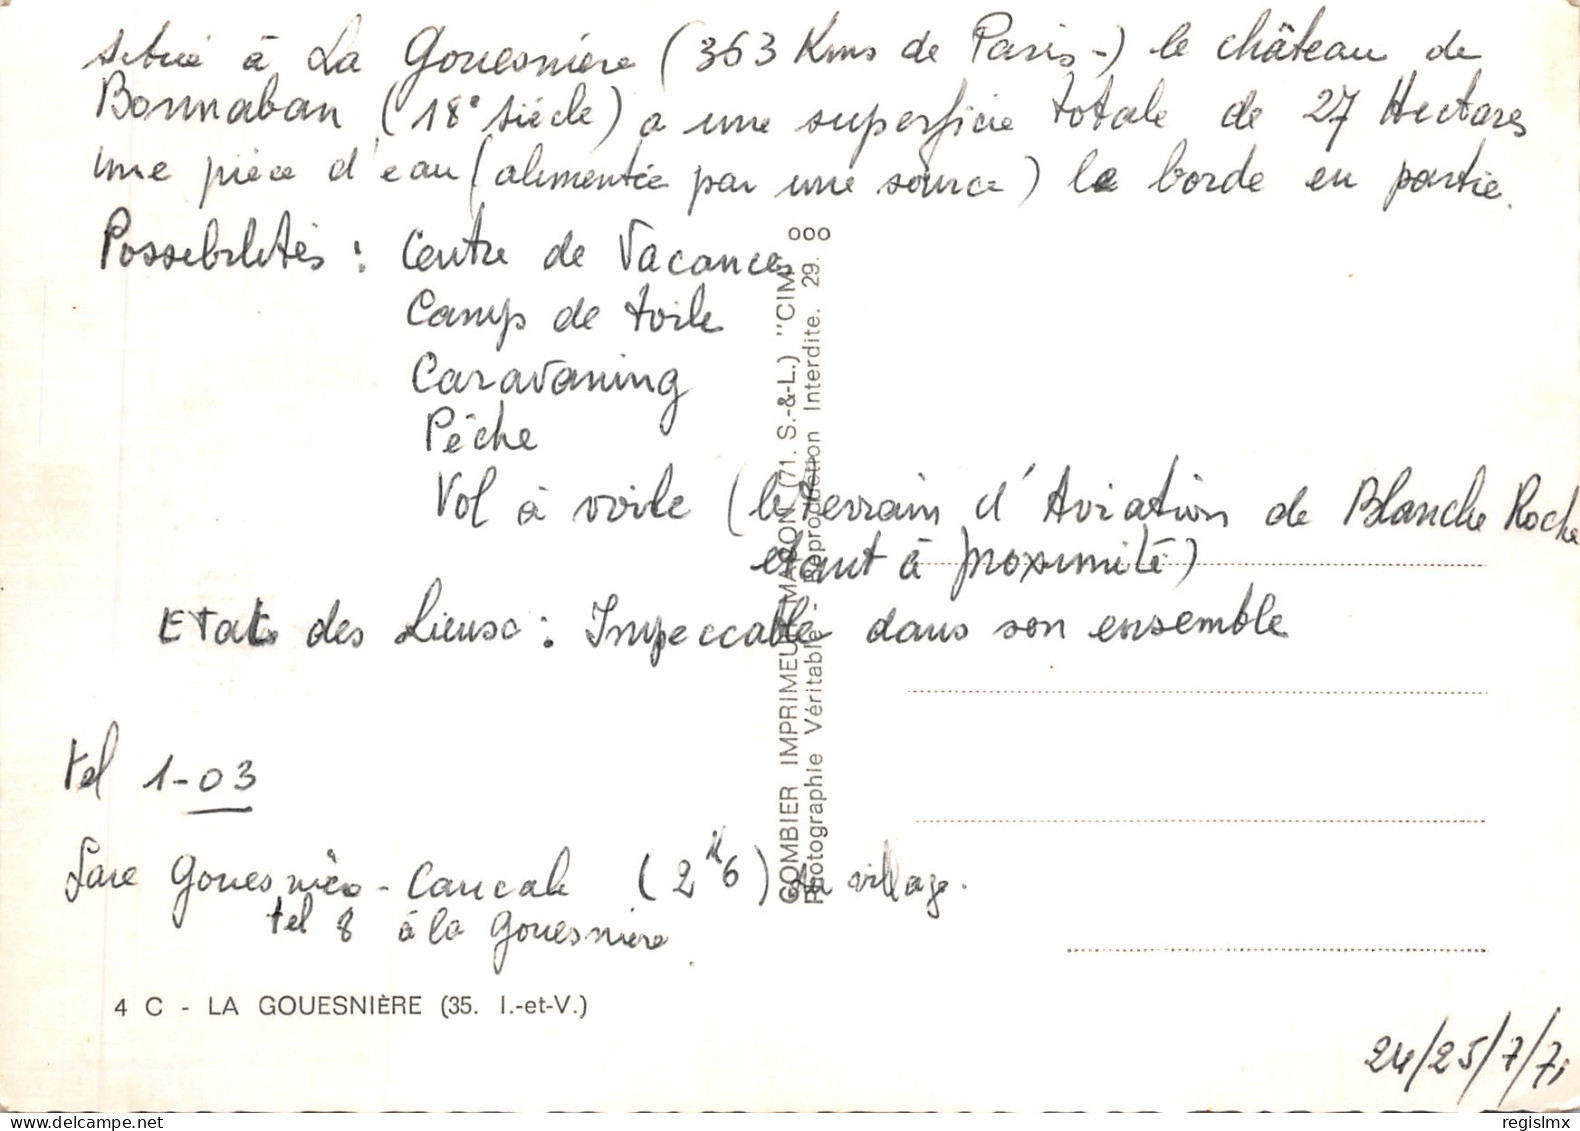 située à La Gouesnière (363 Kms de Paris-) le château de
Bonnaban (18e siècle) a une superficie totale de 27 Hectares
une pièce d'eau (alimentée par une source) le borde en partie.
Possibilités : Centre de Vacances
Camp de toile
Caravaning
Pêche
Vol à voile (le terrain d'Aviation de Blanche Roche
étant à proximité)
Etat des Lieux : Impeccable dans son ensemble
tel 1-03
Gare Gouesnière - Cancale (2K6) du village.
tel 8 à la Gouesnière
4 C - LA GOUESNIÈRE (35. I.-et-V.)
24/25/7/71
COMBIER IMPRIMEUR MACON (71. S.-&-L.) "CIM"
Photographie Véritable - Reproduction Interdite. 29. 000
regislmx